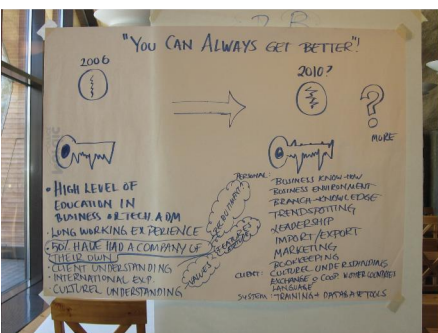 "YOU CAN ALWAYS GET BETTER"!
2006
2010?
?
MORE
• HIGH LEVEL OF
EDUCATION IN
BUSINESS OR TECH, ADM
• LONG WORKING EXPERIENCE
• 50% HAVE HAD A COMPANY OF
THEIR OWN
• CLIENT UNDERSTANDING
• INTERNATIONAL EXP
• CULTUREL UNDERSTANDING
RECRUITMENT
VALUES
PERSONAL:
BUSINESS KNOW-HOW
BUSINESS ENVIRONMENT
BRANCH-KNOWLEDGE
TRENDSPOTTING
LEADERSHIP
IMPORT/EXPORT
MARKETING
BOOKKEEPING
CLIENT: CULTUREL UNDERSTANDING
EXCHANGE & COOP.
LANGUAGE
SYSTEM: TRAINING & DATABASE TOOLS